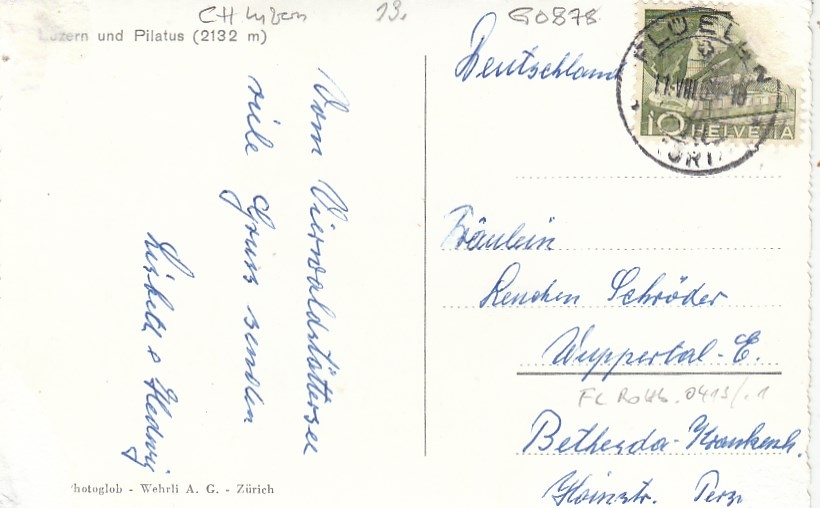 CH Luzern 13. G0878
Luzern und Pilatus (2132 m)
Vom Vierwaldstättersee
viele Grüsse senden
Lisbeth & Hedwig
Photoglob - Wehrli A. G. - Zürich
Deutschland
FLÜELEN
10 HELVETIA
Fräulein
Lenchen Schröder
Wuppertal-E.
Bethesda-Krankenh.
Hainstr.